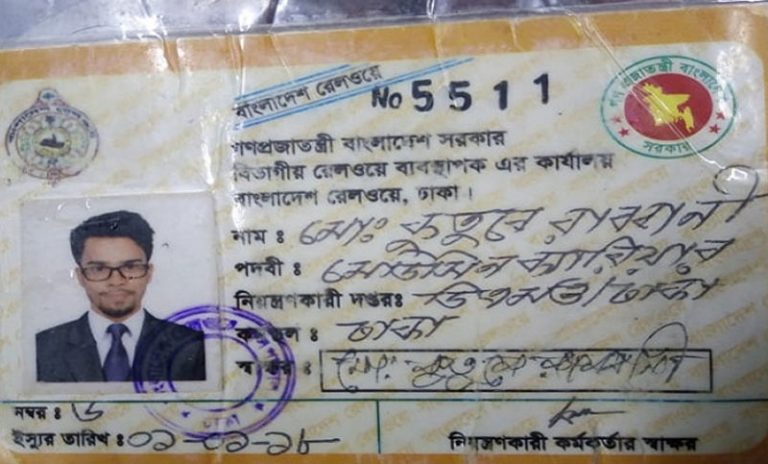 বাংলাদেশ রেলওয়ে
No 5511
গণপ্রজাতন্ত্রী বাংলাদেশ সরকার
বিভাগীয় রেলওয়ে ব্যবস্থাপক এর কার্যালয়
বাংলাদেশ রেলওয়ে, ঢাকা।
নাম ঃ মোঃ কুতুবে রাব্বানী
পদবী ঃ মেডিসিন ক্যারিয়ার
নিয়ন্ত্রণকারী দপ্তরঃ ডিএমও/ঢাকা
ঃ ঢাকা
স্বাক্ষর ঃ মোঃ কুতুবে রাব্বানী
নম্বর ঃ ৬
ইস্যুর তারিখ ঃ ০১-০১-১৮
নিয়ন্ত্রণকারী কর্মকর্তার স্বাক্ষর
গণপ্রজাতন্ত্রী বাংলাদেশ
সরকার